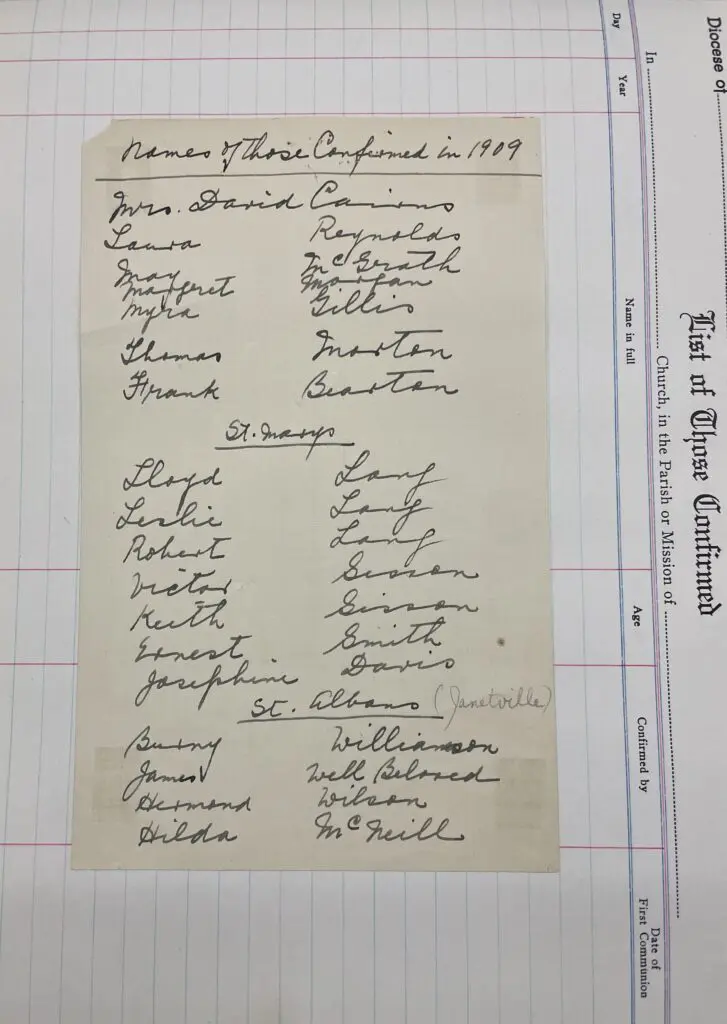 Names of those Confirmed in 1909
Mrs. David Cairns
Laura Reynolds
May McGrath
Margeret Morgan
Myra Gillis
Thomas Morton
Frank Bearton
St. Marys
Lloyd Lang
Leslie Lang
Robert Lang
Victor Sisson
Keith Sisson
Ernest Smith
Josephine Davis
St. Albans (Janetville)
Burny Williamson
James Well Beloved
Hermond Wilson
Hilda McNeill
Diocese of
List of Those Confirmed
In Church, in the Parish or Mission of
Day Year Name in full Age Confirmed by Date of
First Communion